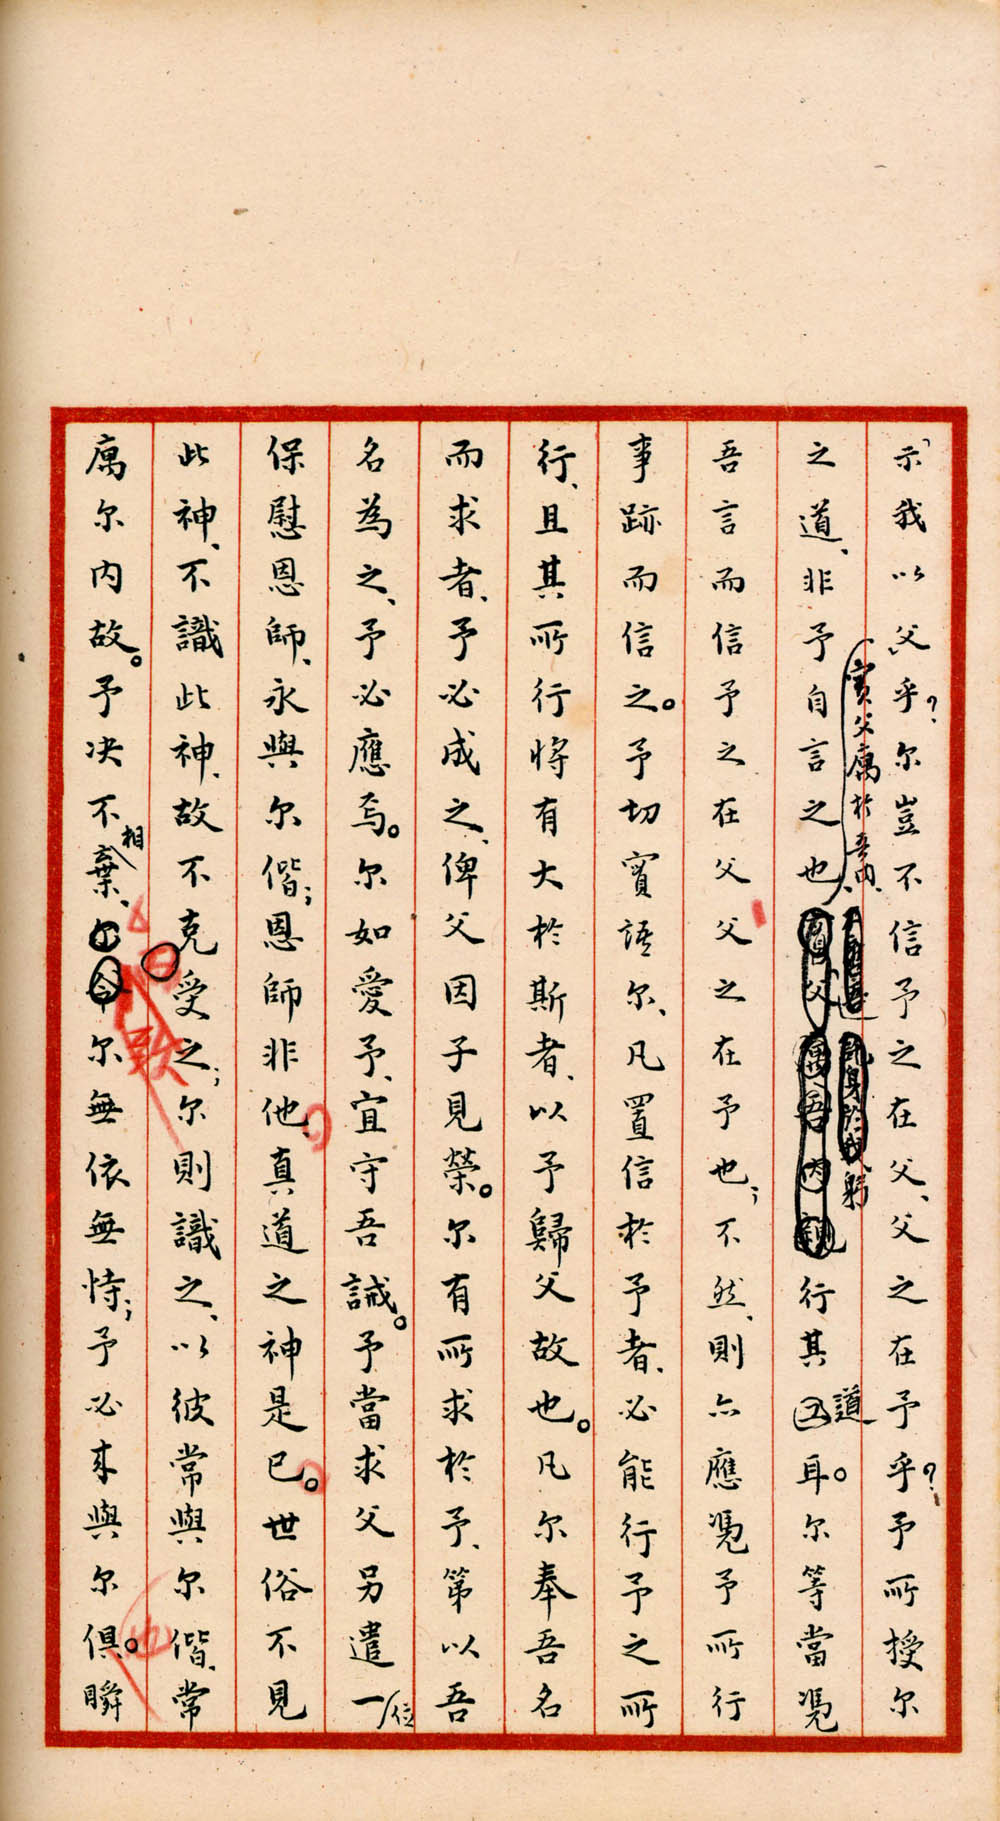 「示我以父」乎?尔豈不信予之在父、父之在予乎?予所授尔
之道、非予自言之也、實父寓於吾内、行其道耳。尔等當憑
吾言而信予之在父父之在予也;不然、則亦應憑予所行
事跡而信之。予切實語尔、凡置信於予者、必能行予之所
行、且其所行將有大於斯者、以予歸父故也。凡尔奉吾名
而求者、予必成之、俾父因子見榮。尔有所求於予、第以吾
名為之、予必應焉。尔如愛予、宜守吾誡。予當求父另遣一位
保慰恩師、永與尔偕;恩師非他、真道之神是已。世俗不見
此神、不識此神、故不克受之;尔則識之、以彼常與尔偕、常
寓尔内故。予决不相棄、令尔無依無恃;予必來與尔俱。瞬